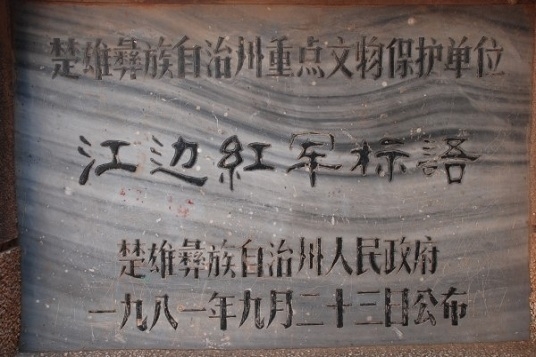 楚雄彝族自治州重点文物保护单位
江边紅军标語
楚雄彝族自治州人民政府
一九八一年九月二十三日公布